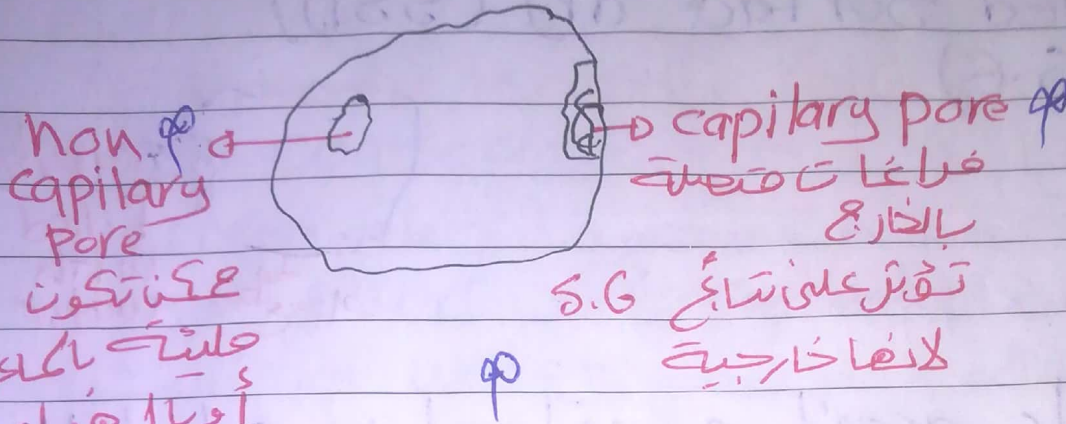 non
capilary
pore
ممكن تكون
مليئة بالماء
capilary pore
فراغات متصلة
بالخارج
تؤثر على نتائج S.G
لانها خارجية